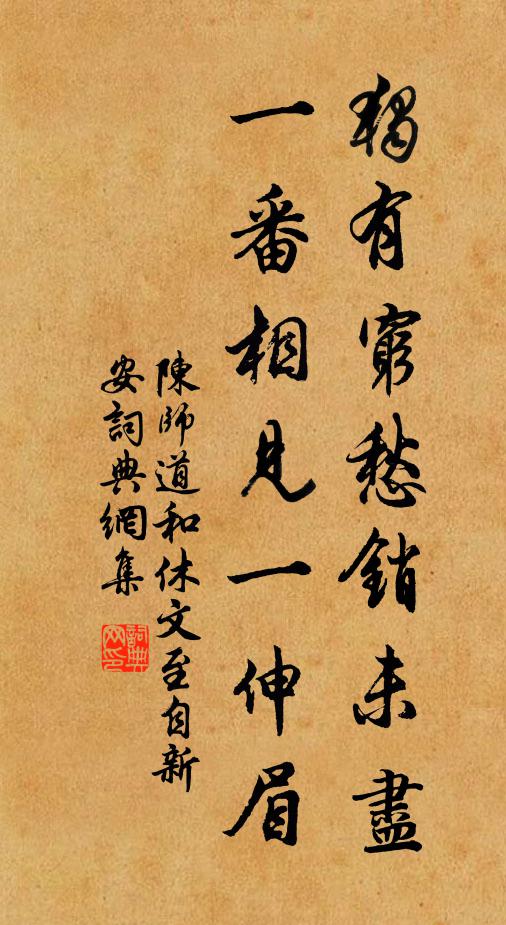 獨有窮愁銷未盡
一番相見一伸眉
陳師道和休文至自新
安詞典網集
詞典
网印